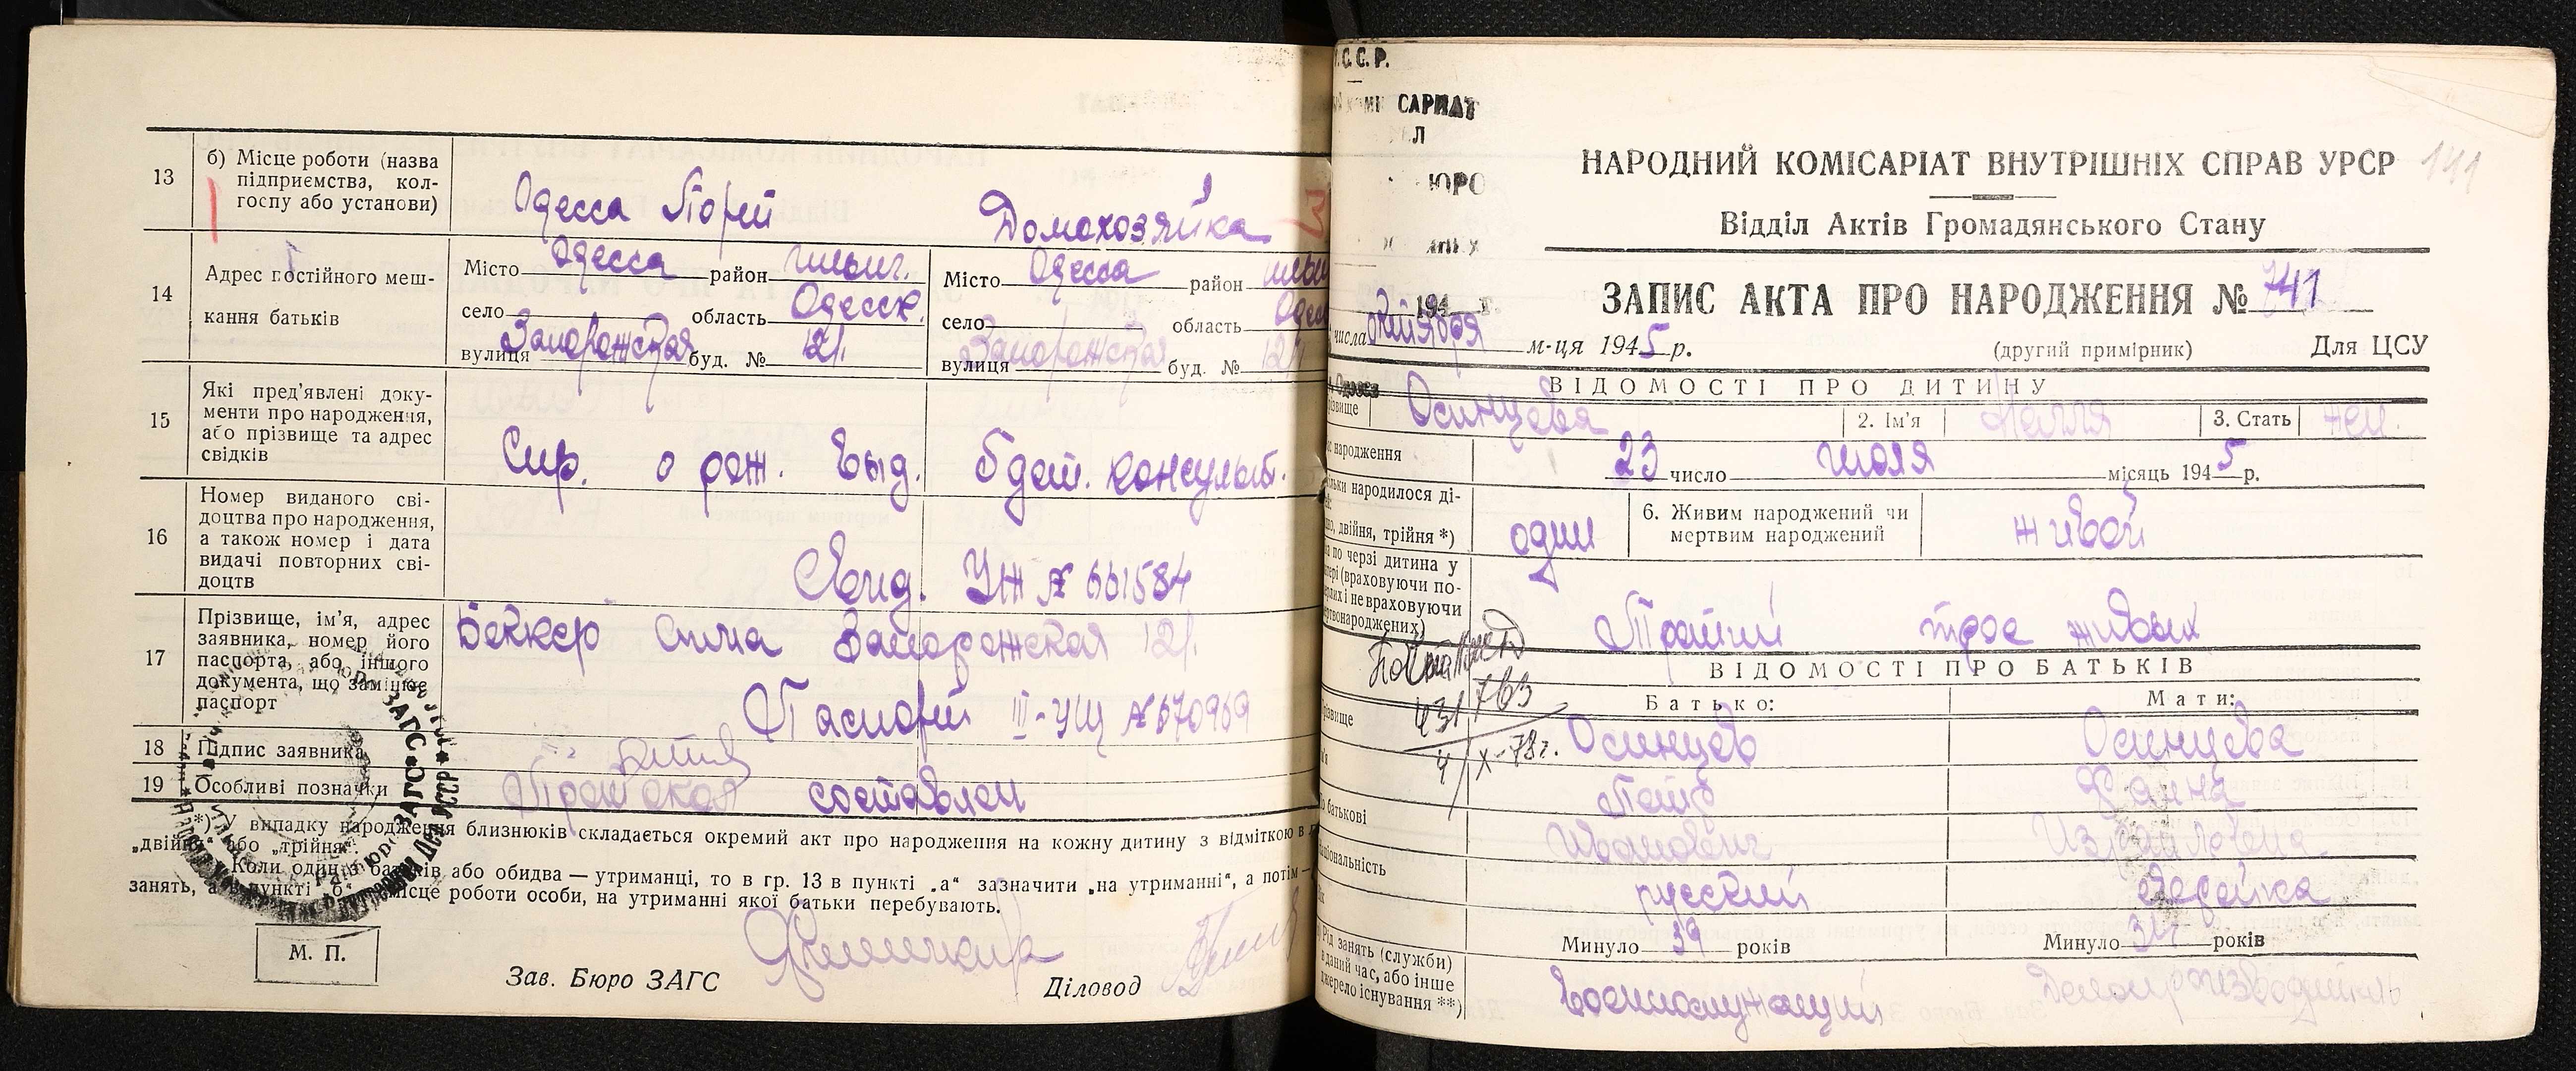 13
б) Місце роботи (назва
підприємства, кол-
госпу або установи)
Одесса Порт
Домохозяйка
14
Адрес постійного меш-
кання батьків
Місто Одесса район Ильич.
село область Одесск.
вулиця Запорожская буд. № 12/.
Місто Одесса район Ильи
село область Одес
вулиця Запорожская буд. № 12/
15
Які пред'явлені доку-
менти про народження,
або прізвище та адрес
свідків
Спр. о рож. выд. 5 дет. консульт.
16
Номер виданого сві-
доцтва про народження,
а також номер і дата
видачі повторних сві-
доцтв
Свид. УЖ № 661584
17
Прізвище, ім'я, адрес
заявника, номер його
паспорта, або іншого
документа, що заміщає
паспорт
Беккер Сима Запорожская 12/.
Паспорт III-УЩ № 670969
18
Підпис заявника
19
Особливі позначки
составлен
*) У випадку народження близнюків складається окремий акт про народження на кожну дитину з відміткою в
„двійня" або „трійня".
Коли один з батьків або обидва — утриманці, то в гр. 13 в пункті „а" зазначити „на утриманні", а потім —
занять, а в пункті „б" місце роботи особи, на утриманні якої батьки перебувають.
М. П.
Зав. Бюро ЗАГС
Діловод
С.С.Р.
САРИАТ
Л
ЮРО
194 г.
141
НАРОДНИЙ КОМІСАРІАТ ВНУТРІШНІХ СПРАВ УРСР
Відділ Актів Громадянського Стану
ЗАПИС АКТА ПРО НАРОДЖЕННЯ № 741
числа октября м-ця 1945 р.
(другий примірник)
Для ЦСУ
ВІДОМОСТІ ПРО ДИТИНУ
Осинцева
2. Ім'я Нелля
3. Стать жен.
народження
23 число июля місяць 1945 р.
льки народилося ді-
двійня, трійня *)
один
6. Живим народжений чи
мертвим народжений
живой
по черзі дитина у
(враховуючи по-
і не враховуючи
мертвонароджених)
Третий трое живых
ВІДОМОСТІ ПРО БАТЬКІВ
Батько:
Мати:
431/763
4/X-78г.
Осинцев
Осинцева
Петр
Фаина
батькові
Иванович
Израилевна
національність
русский
еврейка
Минуло 39 років
Минуло 34 років
Рід занять (служби)
в даний час, або інше
джерело існування **)
военнослужащий
Делопроизводитель